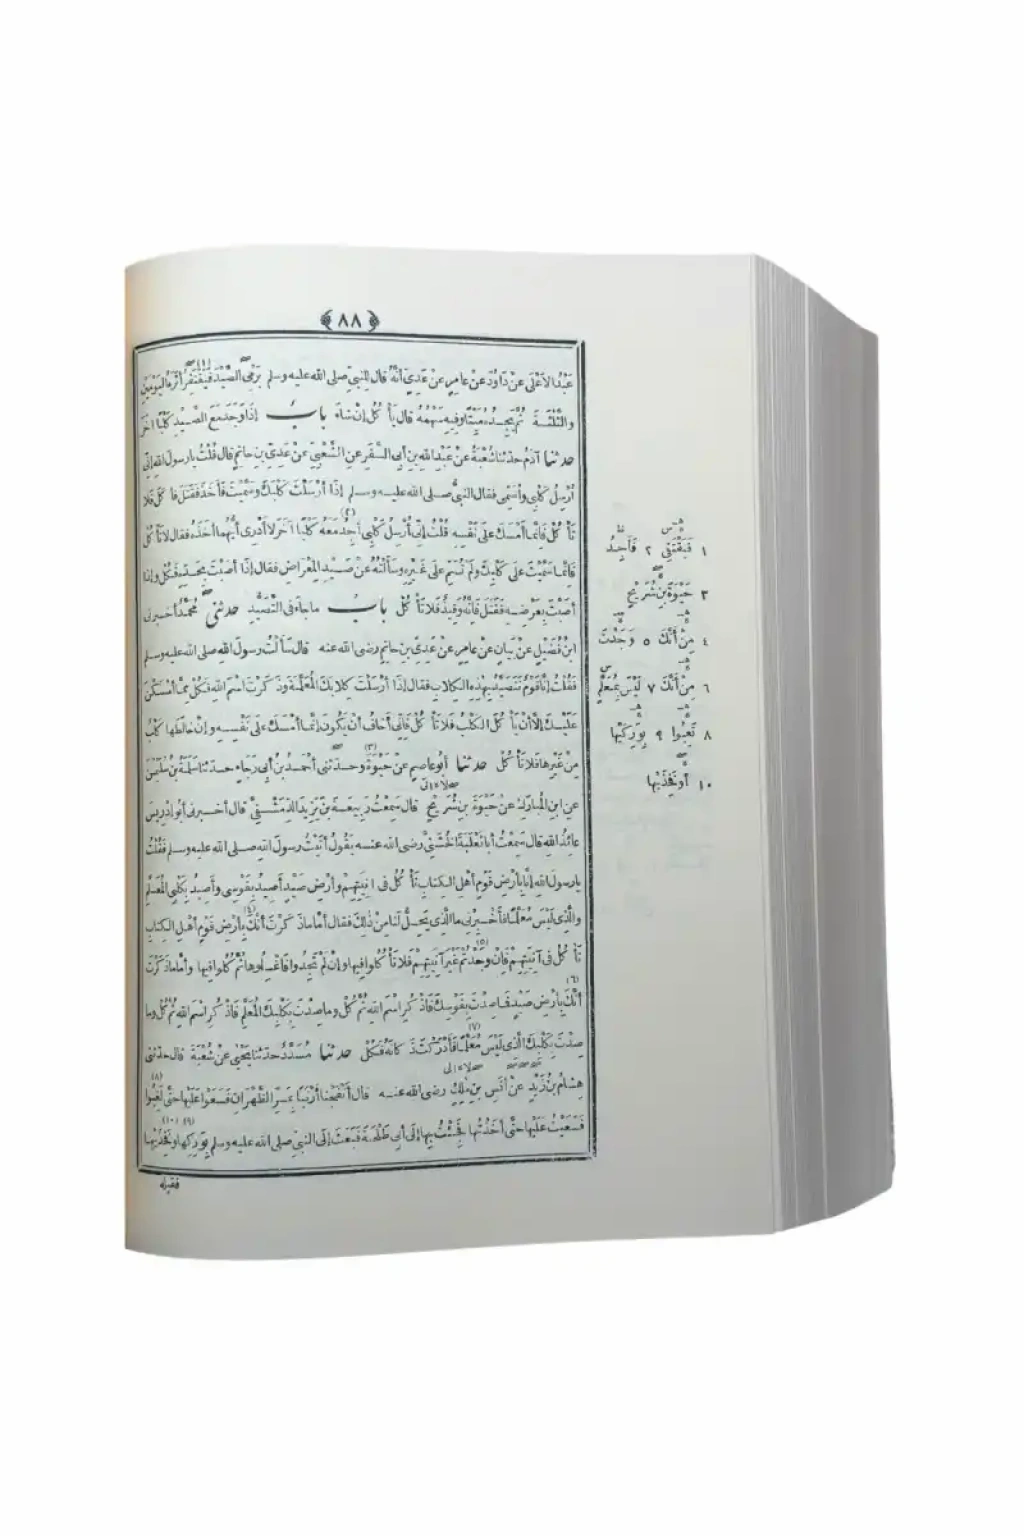 ﴿٨٨﴾
عَبْدُ الأَعْلَى عَنْ دَاوُدَ عَنْ عَامِرٍ عَنْ عَدِيٍّ أَنَّهُ قالَ لِلنبيِّ صلى الله عليه وسلم يَرْمِي الصَّيْدَ فَيَقْتَفِرُ (١) أَثَرَهُ اليَوْمَيْنِ
والثَّلَاثَةَ ثُمَّ يَجِدُهُ مَيِّتًا وفِيهِ سَهْمُهُ قال يَأْكُلُ إنْ شاءَ بابُ إذا وَجَدَ مَعَ الصَّيْدِ كَلْبًا آخَرَ
حدثنا آدَمُ حدّثنا شُعْبَةُ عَنْ عَبْدِ اللهِ بنِ أبي السَّفَرِ عنِ الشَّعْبِيِّ عَنْ عَدِيِّ بنِ حاتِمٍ قال قُلْتُ يا رسولَ اللهِ إنِّي
أُرْسِلُ كَلْبِي وأُسَمِّي فقال النبيُّ صلى الله عليه وسلم إذا أرْسَلْتَ كَلْبَكَ وسَمَّيْتَ فَأَخَذَ فَقَتَلَ فَأَكَلَ فَلا
تَأْكُلْ فَإِنَّما أَمْسَكَ عَلَى نَفْسِهِ قُلْتُ إنِّي أُرْسِلُ كَلْبِي أَجِدُ (٢) مَعَهُ كَلْبًا آخَرَ لا أَدْرِي أيُّهُما أَخَذَهُ فقال لا تَأْكُلْ
فَإِنَّما سَمَّيْتَ عَلَى كَلْبِكَ ولَمْ تُسَمِّ عَلَى غَيْرِهِ وسَأَلْتُهُ عَنْ صَيْدِ المِعْرَاضِ فقال إذا أصَبْتَ بِحَدِّهِ فَكُلْ وإذا
أصَبْتَ بِعَرْضِهِ فَقَتَلَ فَإِنَّهُ وَقِيذٌ فَلا تَأْكُلْ بابُ ما جاءَ فى التَّصَيُّدِ حدثني مُحَمَّدٌ أخبرنى
ابنُ فُضَيْلٍ عَنْ بَيَانٍ عَنْ عامِرٍ عَنْ عَدِيِّ بنِ حاتِمٍ رضى الله عنه قال سَأَلْتُ رسولَ اللهِ صلى الله عليه وسلم
فَقُلْتُ إنَّا قَوْمٌ نَتَصَيَّدُ بِهٰذِهِ الكِلَابِ فقال إذا أرْسَلْتَ كِلابَكَ المُعَلَّمَةَ وذَكَرْتَ اسْمَ اللهِ فَكُلْ مِمَّا أَمْسَكْنَ
عَلَيْكَ إلَّا أنْ يَأْكُلَ الكَلْبُ فَلا تَأْكُلْ فَإِنِّي أخافُ أنْ يَكُونَ إنَّما أَمْسَكَ عَلَى نَفْسِهِ وإنْ خالَطَها كَلْبٌ
مِنْ غَيْرِها فَلا تَأْكُلْ حدثنا أبُو عاصِمٍ عَنْ حَيْوَةَ (٣) وحدّثنى أَحْمَدُ بنُ أبِي رَجَاءٍ حدّثنا سَلَمَةُ بنُ سُلَيْمَنَ
عنِ ابنِ المُبَارَكِ عَنْ حَيْوَةَ بنِ شُرَيْحٍ قال سَمِعْتُ رَبِيعَةَ بنَ يَزِيدَ الدِّمَشْقِيَّ قال أخبرنى أبُو إدْرِيسَ
عائِذُ اللهِ قال سَمِعْتُ أبا ثَعْلَبَةَ الخُشَنِيَّ رضى الله عنه يَقُولُ أَتَيْتُ رسولَ اللهِ صلى الله عليه وسلم فَقُلْتُ
يا رسولَ اللهِ إنَّا بِأَرْضِ قَوْمٍ أَهْلِ الكِتابِ نَأْكُلُ فى آنِيَتِهِمْ وأَرْضِ صَيْدٍ أَصِيدُ بِقَوْسِي وأَصِيدُ بِكَلْبِي المُعَلَّمِ
والَّذِي لَيْسَ مُعَلَّمًا فَأَخْبِرْنِي ما الَّذِي يَحِلُّ لَنا مِنْ ذٰلِكَ فقال أَمَّا ما ذَكَرْتَ أَنَّكَ (٤) بِأَرْضِ قَوْمٍ أَهْلِ الكِتابِ
تَأْكُلُ فى آنِيَتِهِمْ فَإِنْ وَجَدْتُمْ (٥) غَيْرَ آنِيَتِهِمْ فَلا تَأْكُلُوا فِيها وإنْ لَمْ تَجِدُوا فاغْسِلُوها ثُمَّ كُلُوا فِيها وأمَّا ما ذَكَرْتَ
أَنَّكَ (٦) بِأَرْضِ صَيْدٍ فَما صِدْتَ بِقَوْسِكَ فَاذْكُرِ اسْمَ اللهِ ثُمَّ كُلْ وما صِدْتَ بِكَلْبِكَ المُعَلَّمِ فَاذْكُرِ اسْمَ اللهِ ثُمَّ كُلْ وما
صِدْتَ بِكَلْبِكَ الَّذِي لَيْسَ مُعَلَّمًا (٧) فَأَدْرَكْتَ ذَكَاتَهُ فَكُلْ حدثنا مُسَدَّدٌ حدّثنا يَحْيَى عَنْ شُعْبَةَ قال حدّثنى
هِشامُ بنُ زَيْدٍ عَنْ أَنَسِ بنِ مٰلِكٍ رضى الله عنه قال أَنْفَجْنا أَرْنَبًا بِمَرِّ الظَّهْرَانِ فَسَعَوْا عَلَيْها حتَّى لَغِبُوا (٨)
فَسَعَيْتُ عَلَيْها حتَّى أَخَذْتُها فَجِئْتُ بِها إلَى أبِي طَلْحَةَ فَبَعَثَ إلَى النبيِّ صلى الله عليه وسلم بِوَرِكِها (٩) وفَخِذَيْها (١٠)
فقبله
١ فَيَقْتَفِي ٢ فَأَجِدُ
٣ حَيْوَةَ بنِ شُرَيْحٍ
٤ مِنْ أَنَّكَ ٥ وَجَدْتَ
٦ مِنْ أَنَّكَ ٧ لَيْسَ بِمُعَلَّمٍ
٨ تَعِبُوا ٩ بِوَرِكَيْها
١٠ أَوْ فَخِذَيْها